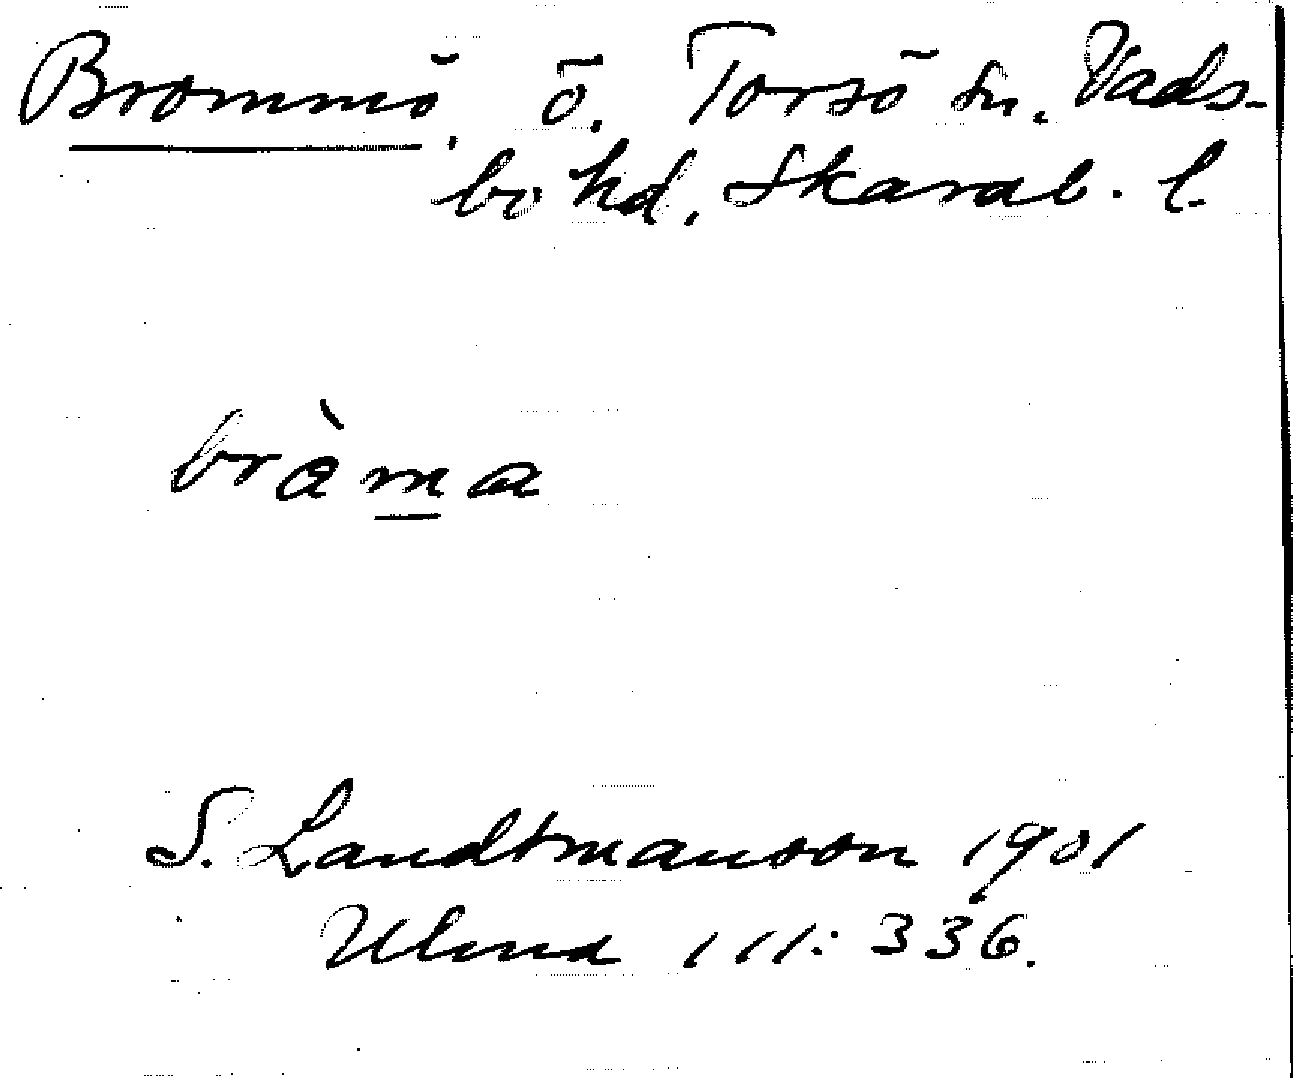 Brommö, ö. Torsö sn. Vads-
bo hd, Skarab. l.
bràma
S. Landtmanson 1901
Ulma 111: 336.